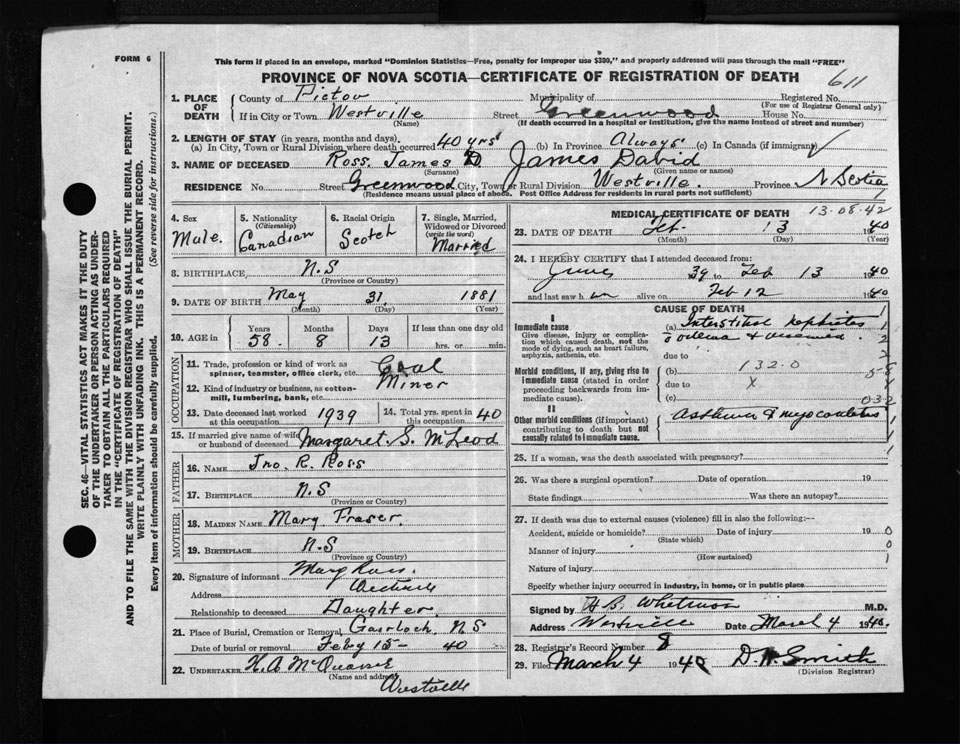 FORM 6
This form if placed in an envelope, marked "Dominion Statistics—Free, penalty for improper use $300," and properly addressed will pass through the mail "FREE"
PROVINCE OF NOVA SCOTIA—CERTIFICATE OF REGISTRATION OF DEATH
611
1. PLACE OF DEATH County of Pictou Municipality of Registered No.
(For use of Registrar General only)
If in City or Town Westville Street Greenwood House No.
(Name) (If death occurred in a hospital or institution, give the name instead of street and number)
2. LENGTH OF STAY (in years, months and days)
(a) In City, Town or Rural Division where death occurred 40 yrs (b) In Province Always (c) In Canada (if immigrant)
3. NAME OF DECEASED Ross James D James David
(Surname) (Given name or names)
RESIDENCE No. Street Greenwood City, Town or Rural Division Westville. Province N Scotia
(Residence means usual place of abode. Post Office Address for residents in rural parts not sufficient)
4. Sex Male.
5. Nationality (Citizenship) Canadian
6. Racial Origin Scotch
7. Single, Married, Widowed or Divorced (write the word) Married
8. BIRTHPLACE N.S
(Province or Country)
9. DATE OF BIRTH May 31. 1881
(Month) (Day) (Year)
10. AGE in Years 58. Months 8 Days 13 If less than one day old
hrs. or min.
OCCUPATION
11. Trade, profession or kind of work as spinner, teamster, office clerk, etc. Coal
12. Kind of industry or business, as cotton-mill, lumbering, bank, etc. Miner
13. Date deceased last worked at this occupation 1939
14. Total yrs. spent in this occupation 40
15. If married give name of wife or husband of deceased Margaret S. McLeod
FATHER
16. NAME Jno. R. Ross
17. BIRTHPLACE N.S
(Province or Country)
MOTHER
18. MAIDEN NAME Mary Fraser.
19. BIRTHPLACE N.S
(Province or Country)
20. Signature of informant Mary Ross.
Address Westville
Relationship to deceased Daughter.
21. Place of Burial, Cremation or Removal Gairloch. NS
Date of burial or removal Feby 15- 40
22. UNDERTAKER
(Name and address)
Westville
MEDICAL CERTIFICATE OF DEATH 13-08-42
23. DATE OF DEATH Feb. 13 1940
(Month) (Day) (Year)
24. I HEREBY CERTIFY that I attended deceased from:
June 39 to Feb 13 1940
and last saw him alive on Feb 12 1940
CAUSE OF DEATH
I
Immediate cause
Give disease, injury or complication which caused death, not the mode of dying, such as heart failure, asphyxia, asthenia, etc.
(a) Interstitial Nephritis
due to
Morbid conditions, if any, giving rise to immediate cause (stated in order proceeding backwards from immediate cause).
(b) 132.0
due to X
(c) 032
II
Other morbid conditions (if important) contributing to death but not causally related to immediate cause.
25. If a woman, was the death associated with pregnancy?
26. Was there a surgical operation? Date of operation 19
State findings Was there an autopsy?
27. If death was due to external causes (violence) fill in also the following:—
Accident, suicide or homicide? Date of injury 19
(State which)
Manner of injury
(How sustained)
Nature of injury
Specify whether injury occurred in industry, in home, or in public place
Signed by H B. Whitman M.D.
Address Westville Date March 4 1940.
28. Registrar's Record Number 8
29. Filed March 4 1940 D. W. Smith
(Division Registrar)
SEC. 46—VITAL STATISTICS ACT MAKES IT THE DUTY
OF THE UNDERTAKER OR PERSON ACTING AS UNDER-
TAKER TO OBTAIN ALL THE PARTICULARS REQUIRED
IN THE "CERTIFICATE OF REGISTRATION OF DEATH"
AND TO FILE THE SAME WITH THE DIVISION REGISTRAR WHO SHALL ISSUE THE BURIAL PERMIT.
WRITE PLAINLY WITH UNFADING INK. THIS IS A PERMANENT RECORD.
Every item of information should be carefully supplied. (See reverse side for instructions.)